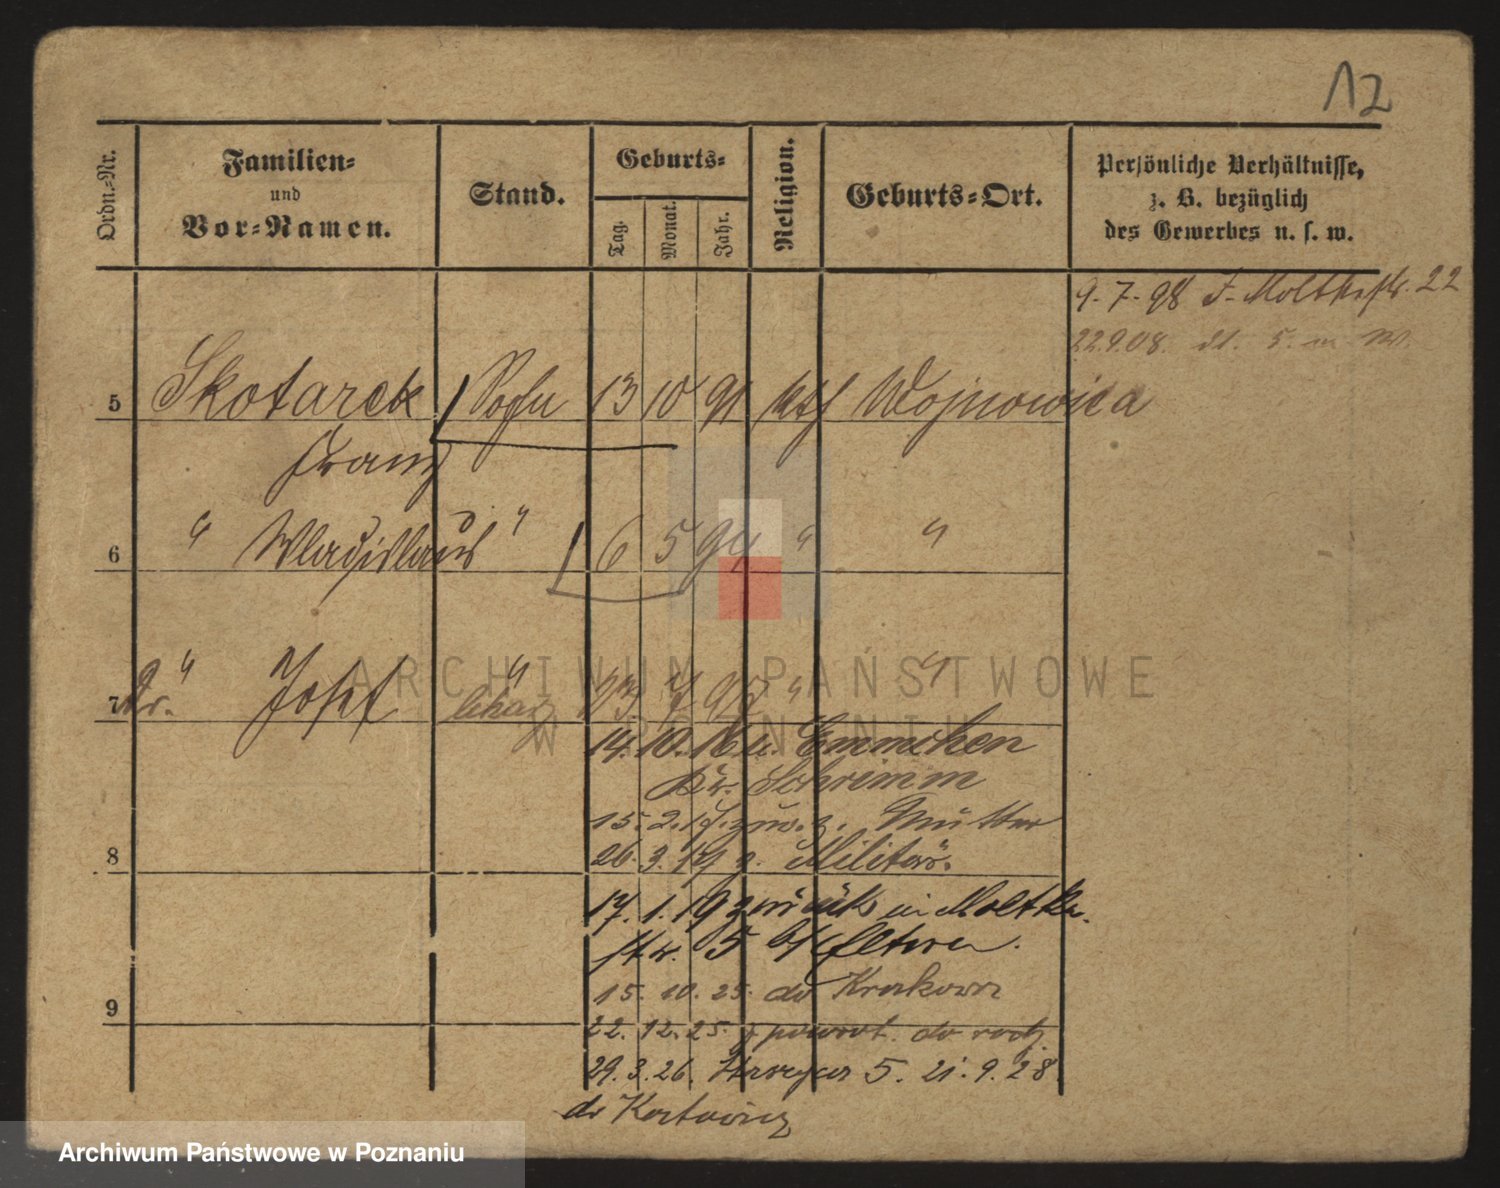 12
Ordn.-Nr.
Familien-
und
Vor-Namen.
Stand.
Geburts-
Tag.
Monat.
Jahr.
Religion.
Geburts-Ort.
Persönliche Verhältnisse,
z. B. bezüglich
des Gewerbes u. s. w.
9. 7. 98 J. Moltkestr. 22
22.9.08.
5 Skotarek 13 10 91 kth Wojnowica
Franz
6 " Wladislaus " 6 5 94 " "
7 Dr. " Josef " 23. 7. 97 " "
lekarz
14. 10. 16 n. Emmchen
Kr. Schrimm
15. 2. 17. zur. z. Mutter
26. 3. 17 z. Militär.
8
17. 1. 19 zurück in Moltke
str. 5 b/ Eltern.
15. 10. 25. do Krakowa
9
22. 12. 25. z powrot. do rodz.
29. 3. 26. 5. 21. 9. 28.
do
ARCHIWUM PAŃSTWOWE
W POZNANIU
Archiwum Państwowe w Poznaniu